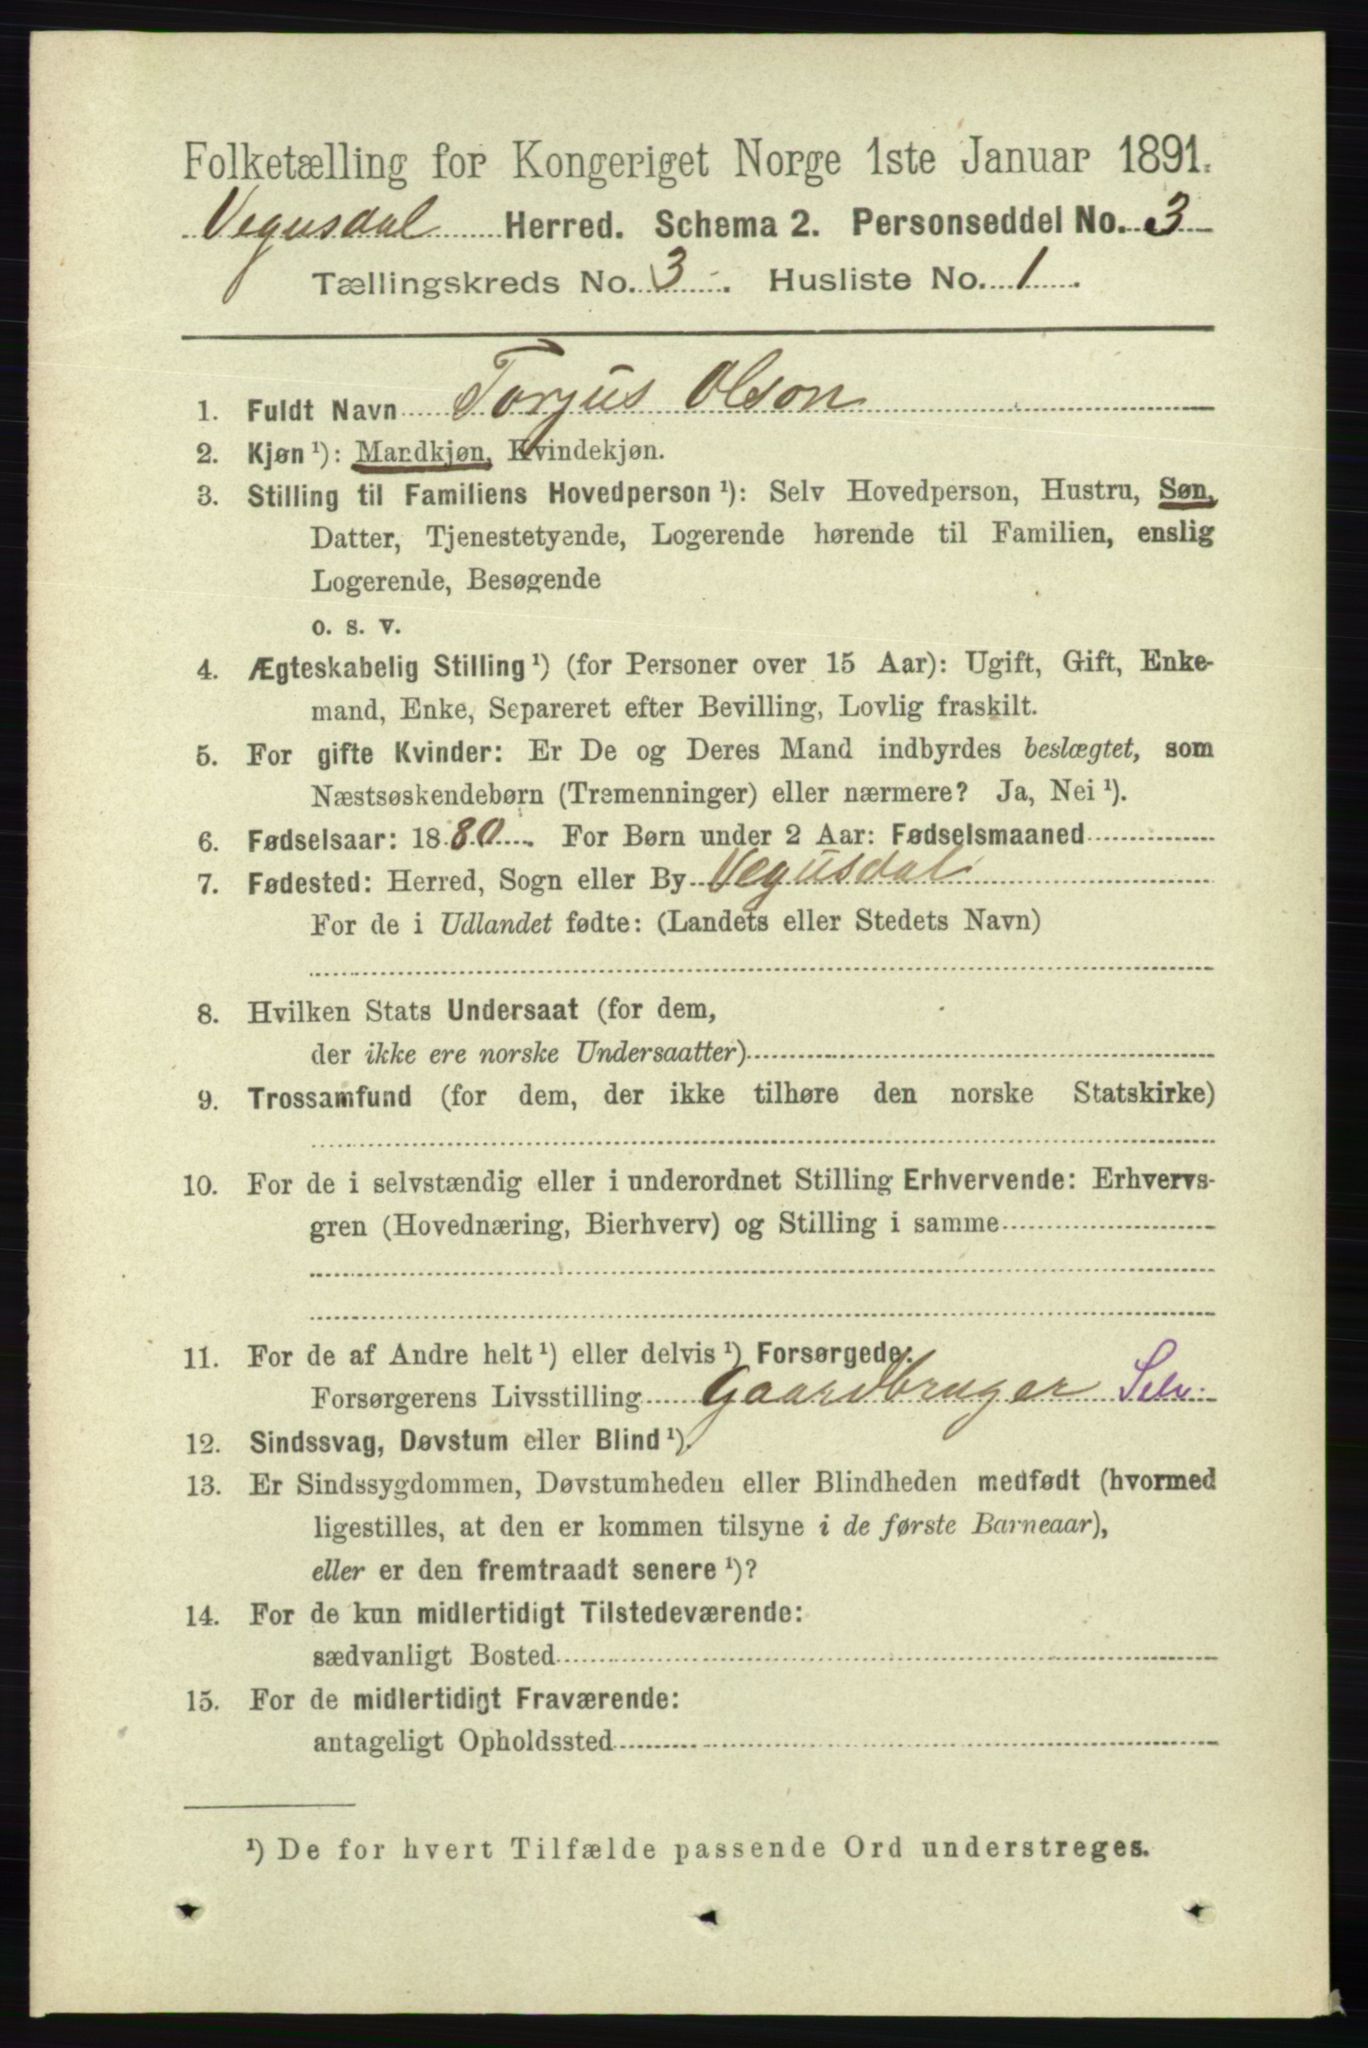 Folketælling for Kongeriget Norge 1ste Januar 1891.
Vegusdal Herred. Schema 2. Personseddel No. 3
Tællingskreds No. 3. Husliste No. 1.
1. Fuldt Navn Torjus Olson
2. Kjøn ¹): Mandkjøn, Kvindekjøn.
3. Stilling til Familiens Hovedperson ¹): Selv Hovedperson, Hustru, Søn,
Datter, Tjenestetyende, Logerende hørende til Familien, enslig
Logerende, Besøgende
o. s. v.
4. Ægteskabelig Stilling ¹) (for Personer over 15 Aar): Ugift, Gift, Enke-
mand, Enke, Separeret efter Bevilling, Lovlig fraskilt.
5. For gifte Kvinder: Er De og Deres Mand indbyrdes beslægtet, som
Næstsøskendebørn (Tremenninger) eller nærmere? Ja, Nei ¹).
6. Fødselsaar: 1880. For Børn under 2 Aar: Fødselsmaaned
7. Fødested: Herred, Sogn eller By Vegusdal
For de i Udlandet fødte: (Landets eller Stedets Navn)
8. Hvilken Stats Undersaat (for dem,
der ikke ere norske Undersaatter)
9. Trossamfund (for dem, der ikke tilhøre den norske Statskirke)
10. For de i selvstændig eller i underordnet Stilling Erhvervende: Erhvervs-
gren (Hovednæring, Bierhverv) og Stilling i samme
11. For de af Andre helt ¹) eller delvis ¹) Forsørgede:
Forsørgerens Livsstilling Gaardbruger Selv.
12. Sindssvag, Døvstum eller Blind ¹).
13. Er Sindssygdommen, Døvstumheden eller Blindheden medfødt (hvormed
ligestilles, at den er kommen tilsyne i de første Barneaar),
eller er den fremtraadt senere ¹)?
14. For de kun midlertidigt Tilstedeværende:
sædvanligt Bosted
15. For de midlertidigt Fraværende:
antageligt Opholdssted
¹) De for hvert Tilfælde passende Ord understreges.